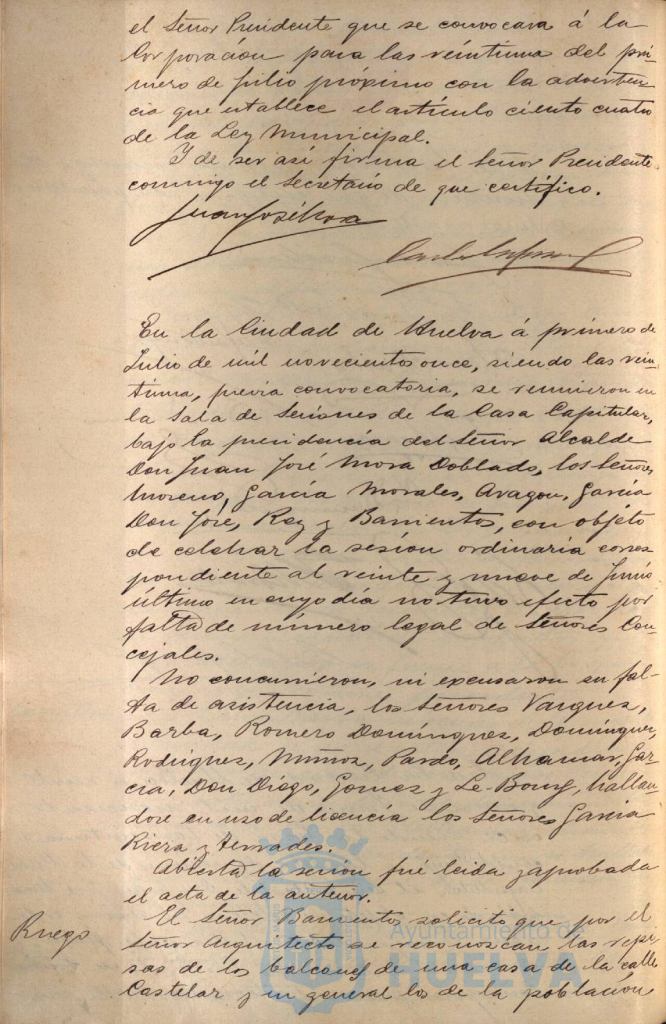 el Señor Presidente que se convocara á la
Corporación para las veintiuna del pri-
mero de Julio próximo con la adverten-
cia que establece el artículo ciento cuatro
de la Ley Municipal.
Y de ser así firma el Señor Presidente
conmigo el Secretario de que certifico.
Juan José Mora
En la Ciudad de Huelva á primero de
Julio de mil novecientos once, siendo las vein-
tiuna, previa convocatoria, se reunieron en
la Sala de Sesiones de la Casa Capitular,
bajo la presidencia del Señor Alcalde
Don Juan José Mora Doblado, los Señores
Moreno, García Morales, Aragon, García
Don José, Rey y Barrientos, con objeto
de celebrar la sesión ordinaria corres
pondiente al veinte y nueve de Junio
último en cuyo día no tuvo efecto por
falta de número legal de Señores Con-
cejales.
No concurrieron, ni excusaron su fal-
ta de asistencia, los Señores Vazquez,
Barba, Romero Domínguez, Domínguez,
Rodríguez, Muñoz, Pardo, Alhamar, Gar-
cia, Don Diego, Gomez y Le-Bourg, hallan-
dose en uso de licencia los Señores García
Riera y Terrades.
Abierta la sesion fué leida y aprobada
el acta de la anterior.
Ruego
El Señor Barrientos solicitó que por el
Señor Arquitecto se reconozcan las repi-
sas de los balcones de una casa de la calle
Castelar y en general los de la población
Ayuntamiento de
HUELVA